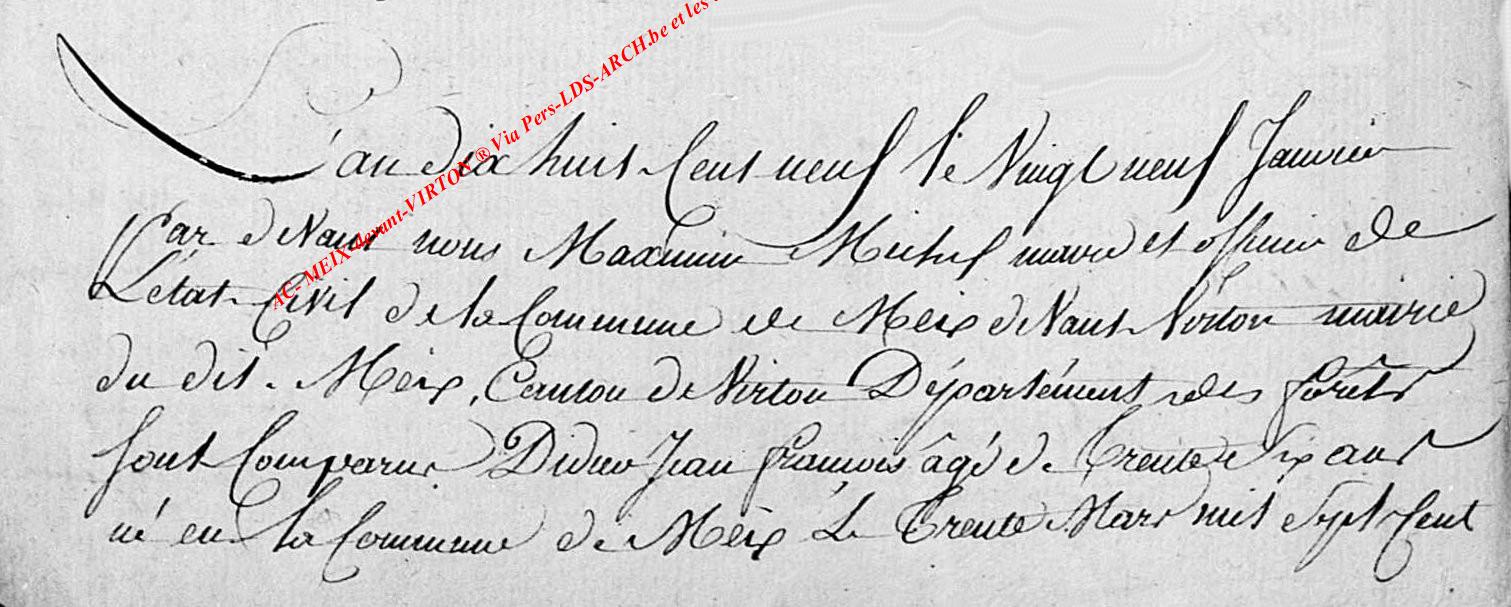 AC- MEIX-devant-VIRTON ® Via Pers-LDS-ARCH.be et les
L'an dix huit Cent neuf le Vingt neuf Janvier
Par devant nous Maximin Michel maire et officier de
L'état Civil de la Commune de Meix devant Virton mairie
du dit Meix, Canton de Virton Département des forêts
sont Comparus Jean françois âgé de trente six ans
né en la Commune de Meix Le trente Mars mil Sept Cent